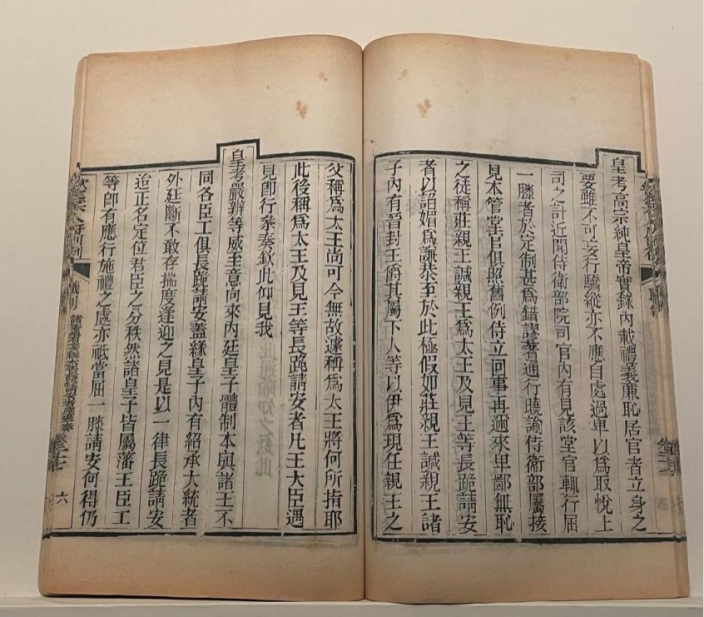 皇考高宗純皇帝實錄內載禮義廉恥居官者立身之
要雖不可妄行驕縱亦不應自處過卑以爲取悅上
司之計近聞侍衛部院司官內有見該堂官輒行屈
一膝者於定制甚爲錯謬著通行曉諭侍衛部屬接
見本管堂官俱照舊例侍立回事再邇來卑鄙無恥
之徒稱莊親王誠親王爲太王及見王等長跪請安
者以諂媚爲謙恭至於此極假如莊親王誠親王諸
子內有晉封王爵其屬下人等以伊爲現任親王之
父稱爲太王尚可今無故遽稱爲太王將何所指耶
此後稱爲太王及見王等長跪請安者凡王大臣遇
見卽行叅奏欽此仰見我
皇考嚴辨等威至意向來內廷皇子體制本與諸王不
同各臣工俱長跪請安蓋緣皇子內有紹承大統者
外廷斷不敢存揣度逢迎之見是以一律長跪請安
迨正名定位君臣之分秩然諸皇子皆屬藩王臣工
等卽有應行施禮之處亦祇當屈一膝請安何得仍
六